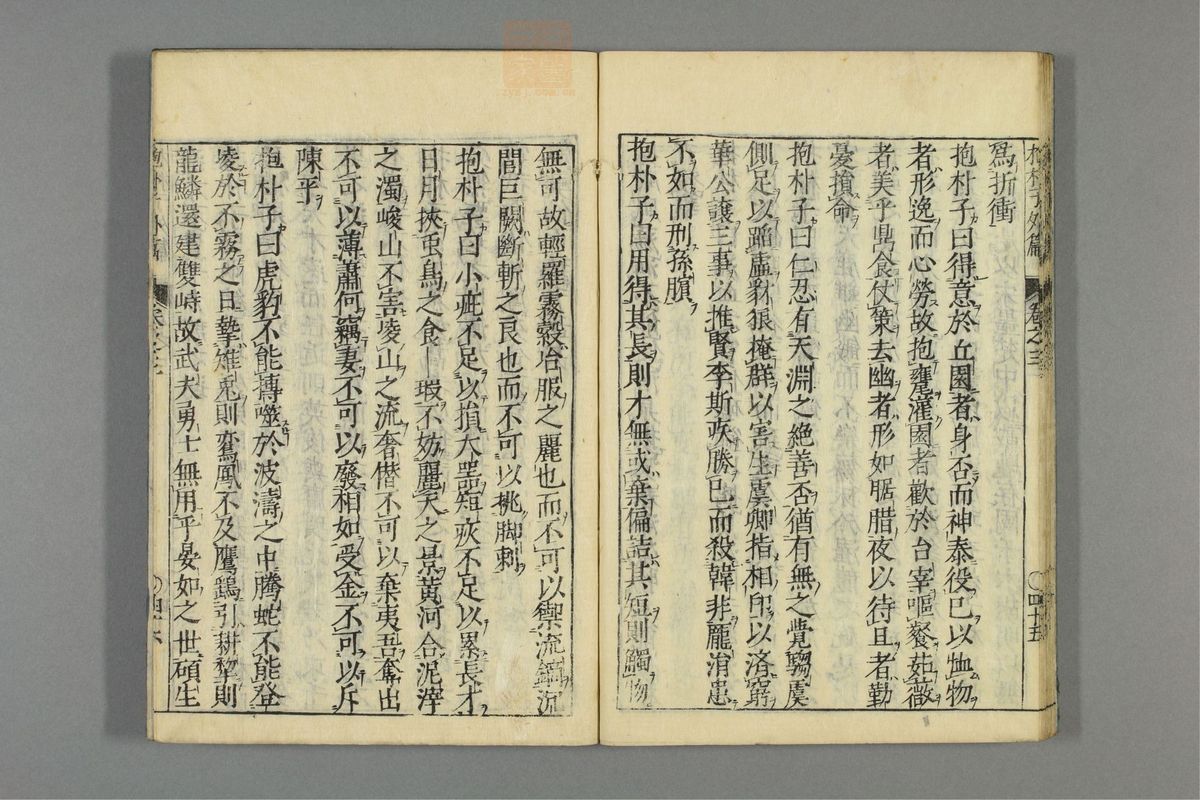 抱朴子外篇 卷之三 四十五
爲折衝
抱朴子曰得意於丘園者身否而神泰役已以恤物
者形逸而心勞故抱甕灌園者歡於台宰嘔餐茹薇
者美乎鼎食仗策去幽者形如腒腊夜以待旦者勤
憂損命
抱朴子曰仁忍有天淵之絶善否猶有無之覺騶虞
側足以蹈虛豺狼掩群以害生虞卿指相印以济窮
華公讓三事以推賢李斯疾勝已而殺韓非龐涓患
不如而刑孫臏
抱朴子曰用得其長則才無或棄偏詰其短則觸物
無可故輕羅霧縠冶服之麗也而不可以禦流鏑沉
閭巨闕斷斬之良也而不可以挑脚刺
抱朴子曰小疵不足以損大噐短疢不足以累長才
日月挾兎烏之食 瑕不妨麗天之景黄河合泥滓
之濁峻山不害凌山之流奢僭不可以棄夷吾奪出
不可以薄蕭何竊妻不可以廢相如受金不可以斥
陳平
抱朴子曰虎豹不能搏噬於波濤之中騰蛇不能登
凌於不霧之日摯雉兎則鸞鳳不及鷹鷂引耕犂則
龍鱗還建雙峙故武夫勇士無用乎晏如之世碩生